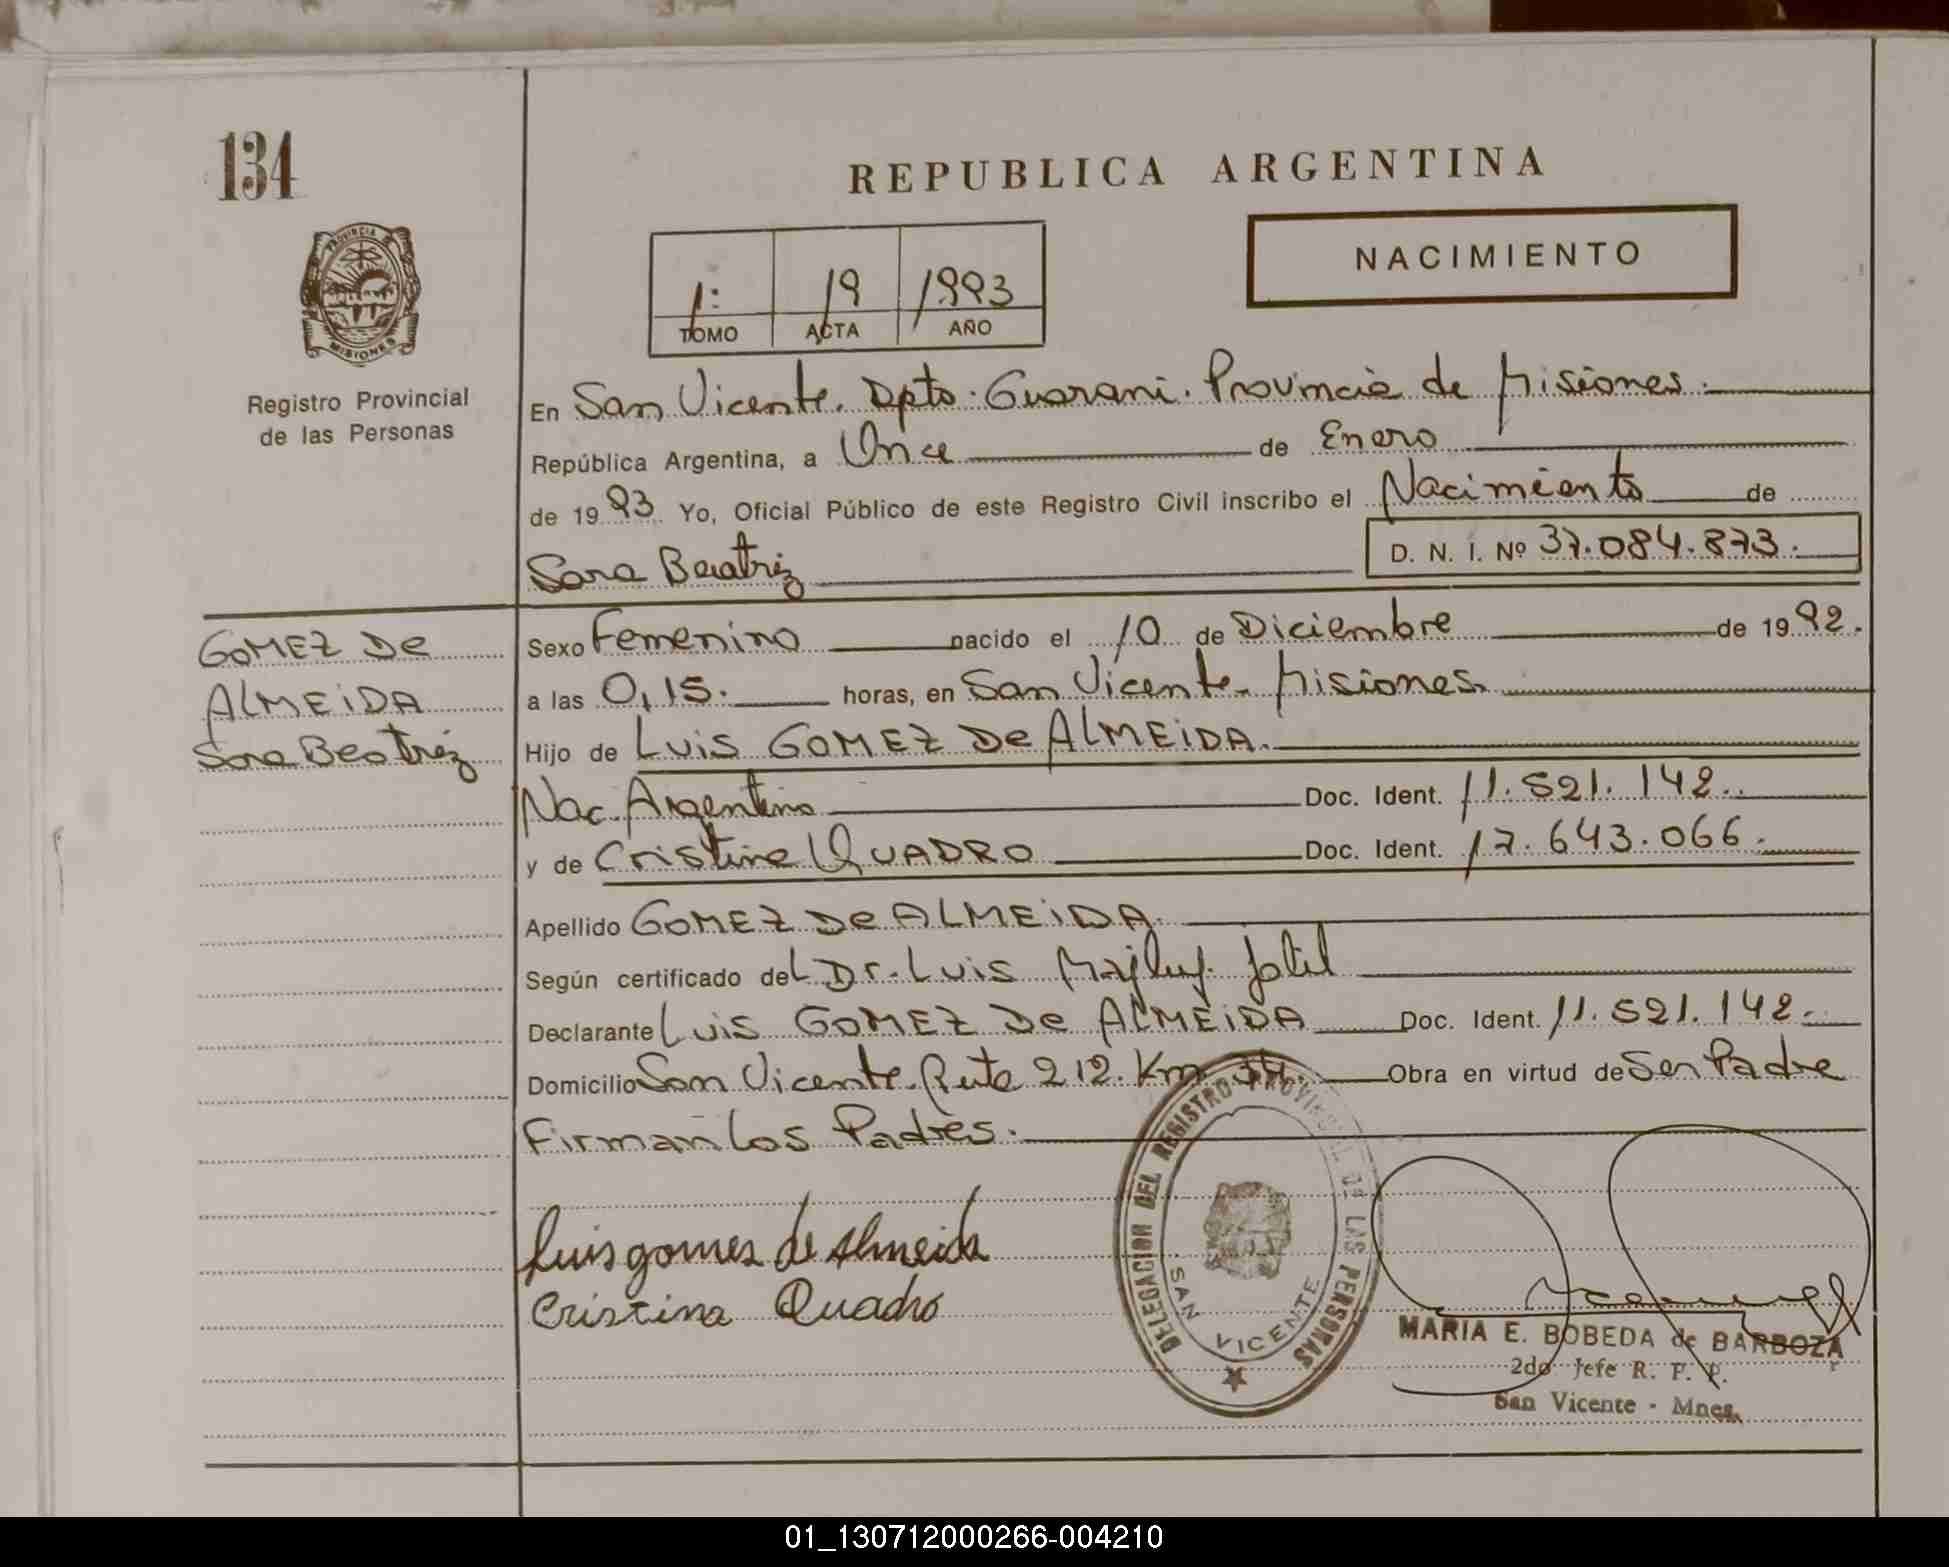 134
REPUBLICA ARGENTINA
PROVINCIA DE MISIONES
Registro Provincial
de las Personas
NACIMIENTO
1: 19 1993
TOMO ACTA AÑO
En San Vicente. Dpto. Guarani. Provincia de Misiones.
República Argentina, a Once de Enero
de 1993 Yo, Oficial Público de este Registro Civil inscribo el Nacimiento de
Sara Beatriz D. N. I. Nº 37.084.873.
GOMEZ De
ALMEiDA
Sara Beatriz
Sexo Femenino nacido el 10 de Diciembre de 1992.
a las 0,15. horas, en San Vicente. Misiones.
Hijo de Luis GOMEZ De ALMEiDA.
Nac. Argentino Doc. Ident. 11.521.142.
y de Cristina QUADRO Doc. Ident. 17.643.066.
Apellido GOMEZ De ALMEiDA.
Según certificado del Dr. Luis
Declarante Luis GOMEZ De ALMEiDA Doc. Ident. 11.521.142.
Domicilio San Vicente. Ruta 212. Km Obra en virtud de Ser Padre
Firman Los Padres.
Luis gomes de Almeida
Cristina Quadro
DELEGACION DEL REGISTRO PROVINCIAL DE LAS PERSONAS
SAN VICENTE
MARIA E. BOBEDA de BARBOZA
2do Jefe R. P. P.
San Vicente - Mnes.
01_130712000266-004210